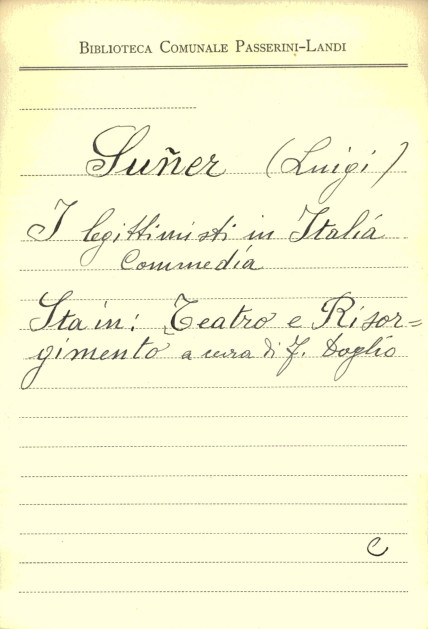 Biblioteca Comunale Passerini-Landi
Suñer (Luigi)
I legittimisti in Italia
Commedia
Sta in: Teatro e Risor=
gimento a cura di F. Doglio
C